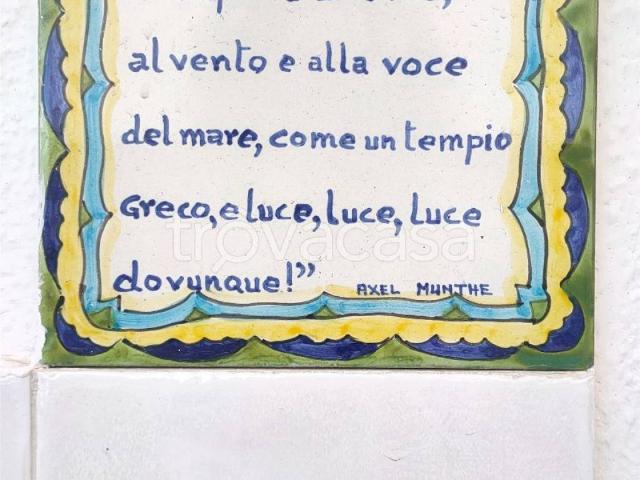 al vento e alla voce
del mare, come un tempio
Greco, e luce, luce, luce
trovacasa
dovunque!”
AXEL MUNTHE